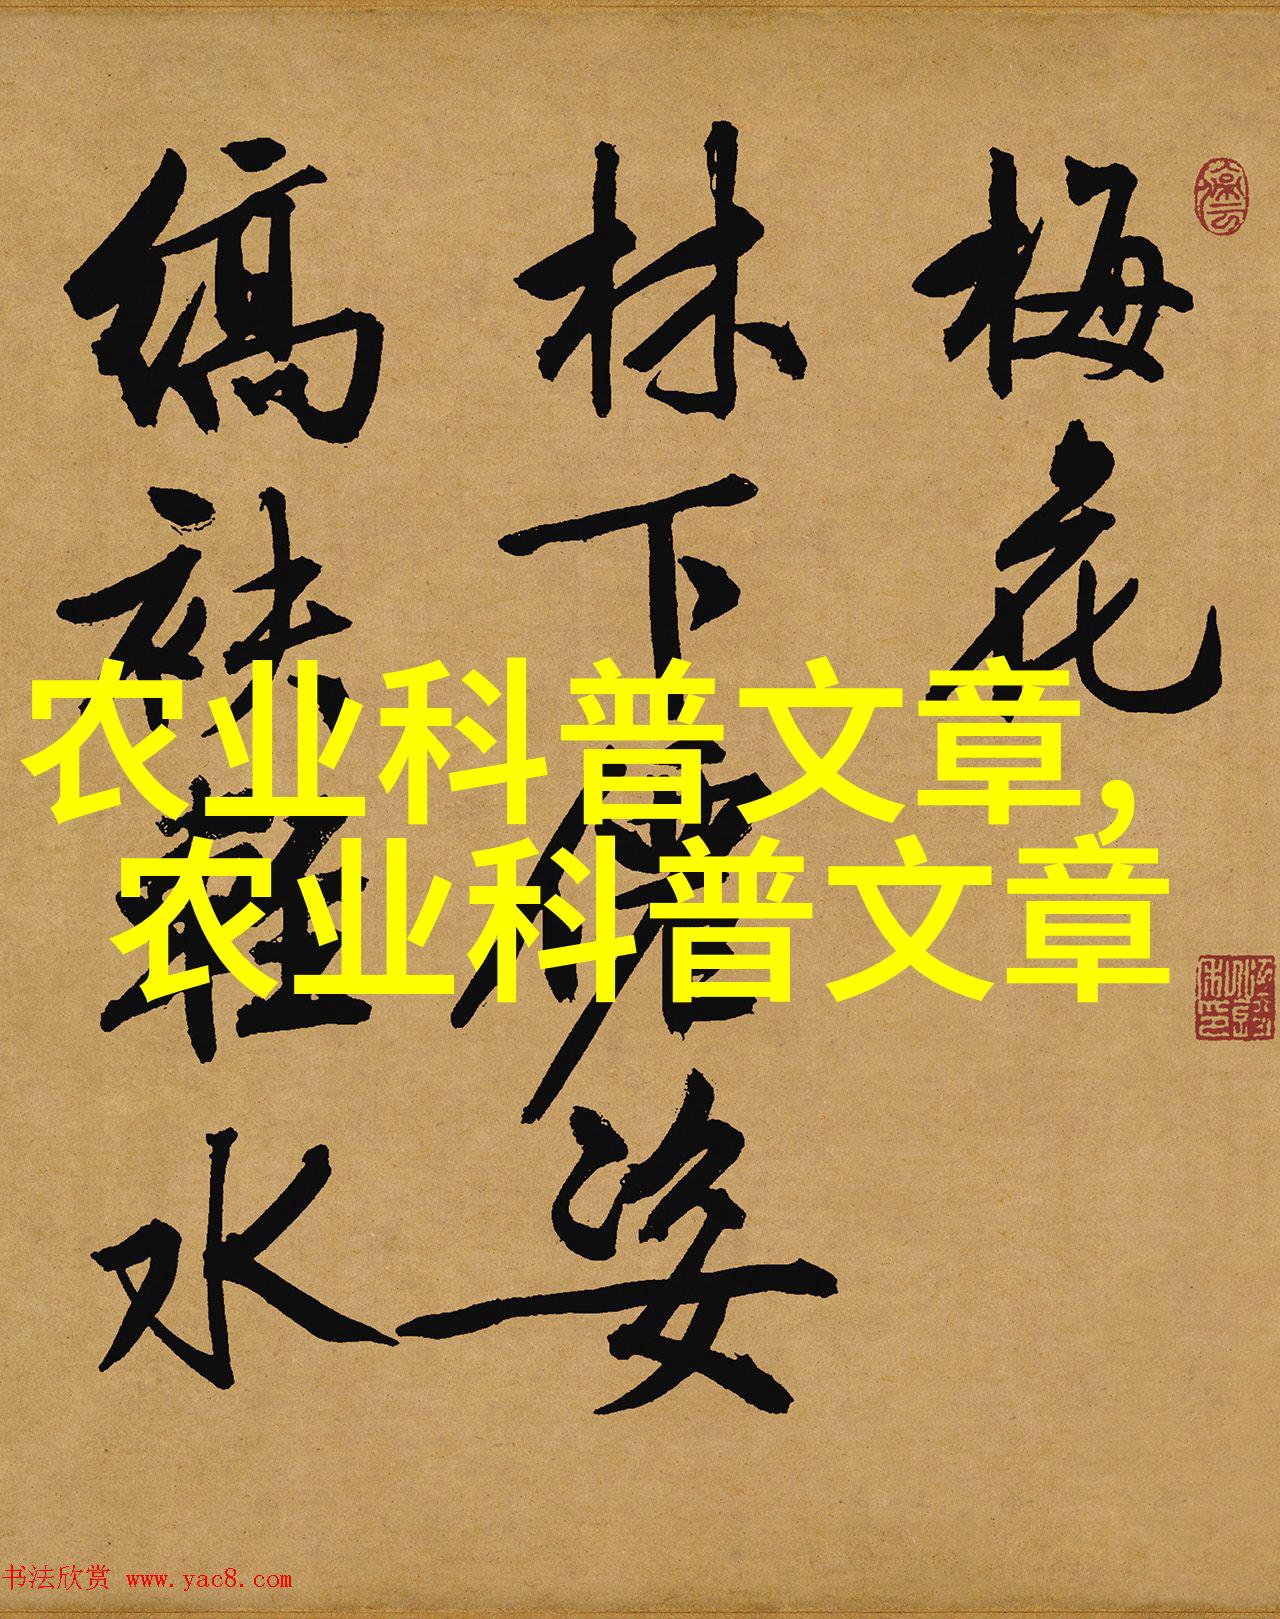 梅花
林下儒姿
缟袂轻水
农业科普文章,
农业科普文章
书法欣赏 www.yac8.com